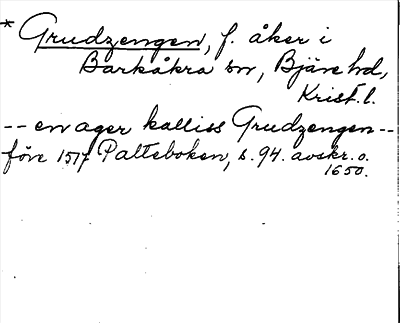 * Grudzengen, f. åker i
Barkåkra sn, Bjäre hd,
Krist. l.
-- en ager kalliss Grudzengen --
före 1517 Palteboken, s. 94. avskr. o.
1650.